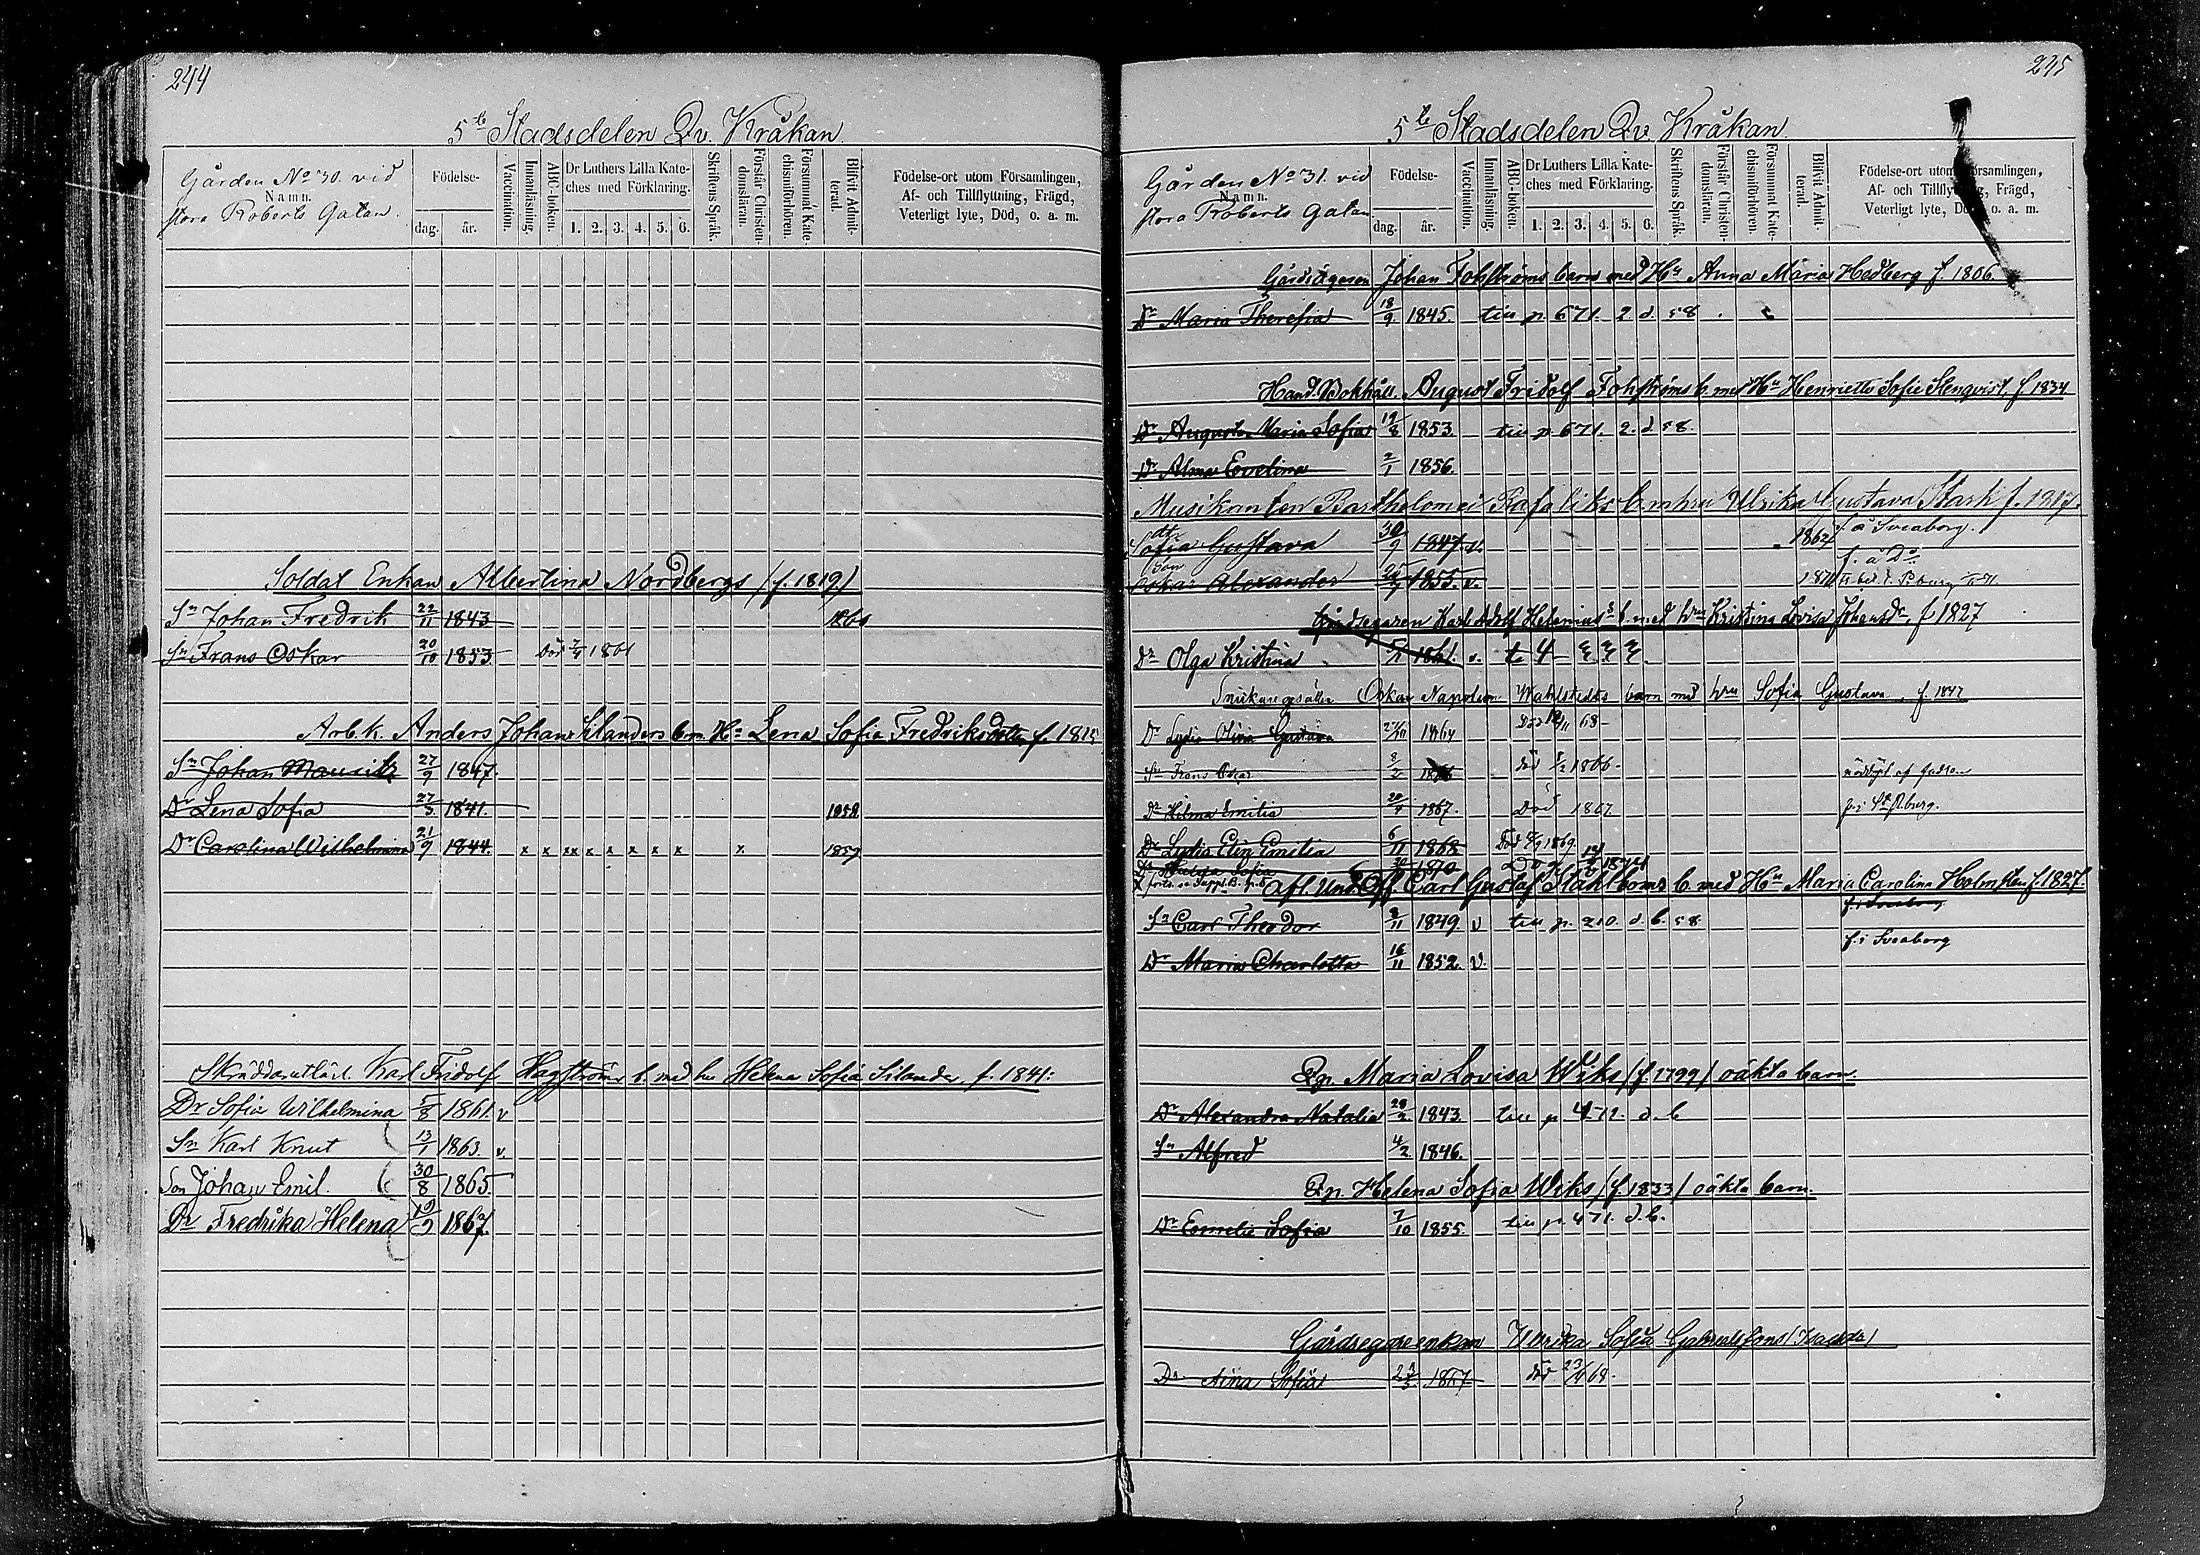 244
5te Stadsdelen Qv. Kråkan.
Gården No 30. vid
Namn.
stora Roberts Gatan.
Födelse-
dag. år.
Vaccination.
Innanläsning.
ABC-boken.
Dr Luthers Lilla Kate-
ches med Förklaring.
1. 2. 3. 4. 5. 6.
Skriftens Språk.
Förstår Christen-
domsläran.
Försummat Kate-
chismiförhören.
Blifvit Admit-
terad.
Födelse-ort utom Församlingen,
Af- och Tillflyttning, Frägd,
Veterligt lyte, Död, o. a. m.
Soldat Enkan Albertina Nordbergs /f. 1819/
Sn Johan Fredrik 22/11 1843 1860
Sn Frans Oskar 20/10 1853. Död 1861
Arb.k. Anders Johan Silanders b.m. Hu Lena Sofia Fredriksdotter f. 1815
Sn Johan Mauritz 27/9 1847.
Dr Lena Sofia 27/3 1841. 1858
Dr Carolina Wilhelmina 21/9 1844. x x xx x x x x x x 1859
Karl Fridolf Hagströms b. med hu Helena Sofia Silander f. 1841.
Dr Sofia Wilhelmina 5/8 1861. v
Sn Karl Knut 13/1 1863. v.
Son Johan Emil. 30/8 1865.
Dr Fredrika Helena 19/9 1867.
245
5te Stadsdelen Qv. Kråkan
Gården No 31. vid
Namn.
stora Roberts Gatan
Födelse-
dag. år.
Vaccination.
Innanläsning.
ABC-boken.
Dr Luthers Lilla Kate-
ches med Förklaring.
1. 2. 3. 4. 5. 6.
Skriftens Språk.
Förstår Christen-
domsläran.
Försummat Kate-
chismiförhören.
Blifvit Admit-
terad.
Födelse-ort utom Församlingen,
Af- och Tillflyttning, Frägd,
Veterligt lyte, Död, o. a. m.
Gårdsägaren Johan Fohströms barn med Hu Anna Maria Hedberg f. 1806
Dr Maria Theresia 18/9 1845. till p. 671. 2. d. 58.
Hand. Bokhåll. August Fridolf Fohströms b. med Hu Henrietta Sofia Stenqvist, f. 1834
Dr Augusta Maria Sofia 19/8 1853. till p. 671. 2. d. 58.
Dr Alma Evelina 2/1 1856.
Musikanten Bartholomei Rafaliks b. m hru Ulrika Gustava Stark f. 1817.
dtr Sofia Gustava 30/9 1847. v. 1862 f. å Sveaborg.
Son Oskar Alexander 1855. v. f. å Do
Gårdsegaren Karl Adolf Helenius's b. med hru Kristina Lovisa Johansdr. f 1827
Dr Olga Kristina 1861. v.
Oskar Napoleon Wahlstedts barn med hru Sofia Gustava f. 1847
Dr Lydia Olivia Gustava 1864 Död 68
Sn Frans Oscar 8/2 död 1866. nöddöpt af fadren
Dr Hilma Emilia 1867. Död 1867 f. i St Pburg.
Dr Lydia Elin Emilia 6/11 1868 Död 1869.
Sofia 1870
Afl. Und. Off Carl Gustaf Ståhlboms b. med Hu Maria Carolina Holmsten f. 1827
f. i Sveaborg
Sn Carl Theodor 1849. v till p. 210. d. b. 58.
f. i Sveaborg
Dr Maria Charlotta 16/11 1852. v.
Qp. Maria Lovisa Wiks /f. 1799/ oäkta barn.
Dr Alexandra Natalia 1843. till p 472. d. b
Sn Alfred 4/2 1846.
Qp. Helena Sofia Wiks /f. 1833/ oäkta barn.
Dr Sofia 7/10 1855. till p. 471. d. b.
Gårdsegareenkan Ulrika Sofia
Dr Aina Sofia 1867 död